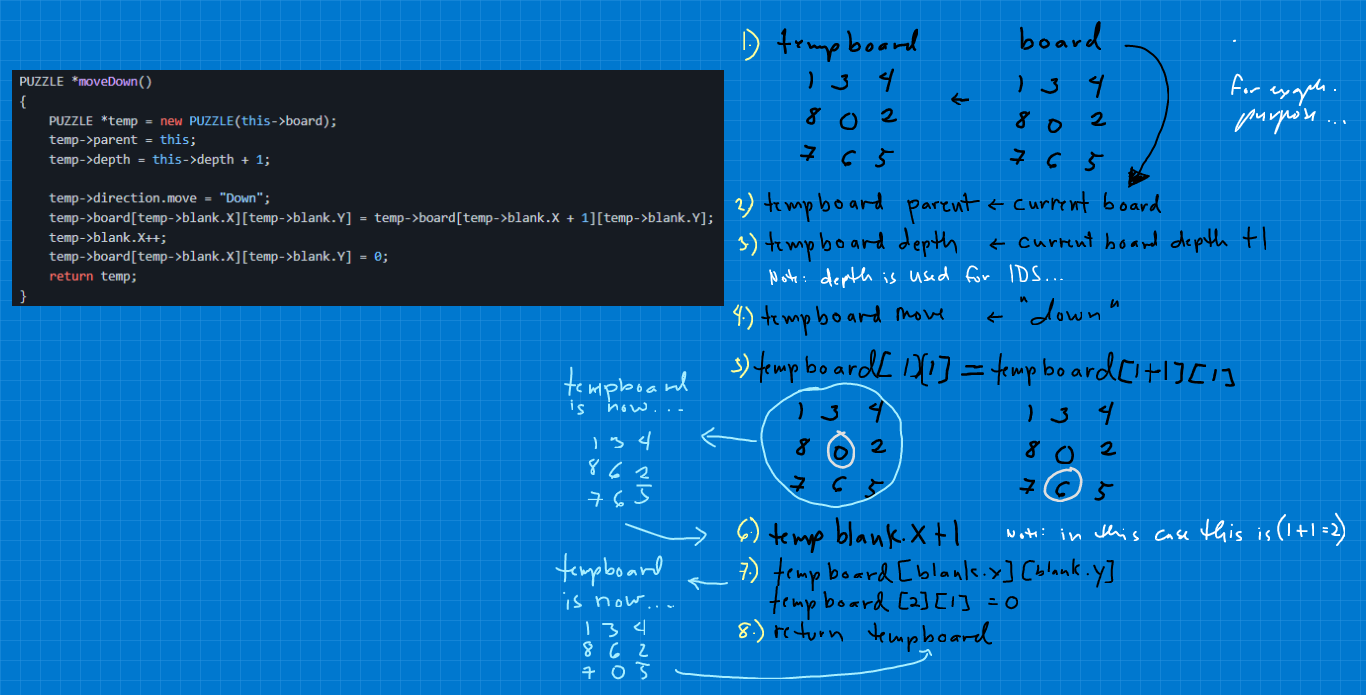 PUZZLE *moveDown()
{
PUZZLE *temp = new PUZZLE(this->board);
temp->parent = this;
temp->depth = this->depth + 1;
temp->direction.move = "Down";
temp->board[temp->blank.X][temp->blank.Y] = temp->board[temp->blank.X + 1][temp->blank.Y];
temp->blank.X++;
temp->board[temp->blank.X][temp->blank.Y] = 0;
return temp;
}
1.) tempboard board
1 3 4 ← 1 3 4
8 0 2 8 0 2
7 6 5 7 6 5
For
purpose...
2) tempboard parent ← current board
3) tempboard depth ← current board depth +1
Note: depth is used for IDS...
4.) tempboard move ← "down"
5) tempboard[1][1] = tempboard[1+1][1]
1 3 4 1 3 4
8 0 2 8 0 2
7 6 5 7 6 5
tempboard
is now...
1 3 4
8 6 2
7 6 5
6.) temp blank.X+1 Note: in this case this is (1+1=2)
7.) tempboard[blank.x][blank.y]
tempboard[2][1] = 0
tempboard
is now...
1 3 4
8 6 2
7 0 5
8.) return tempboard